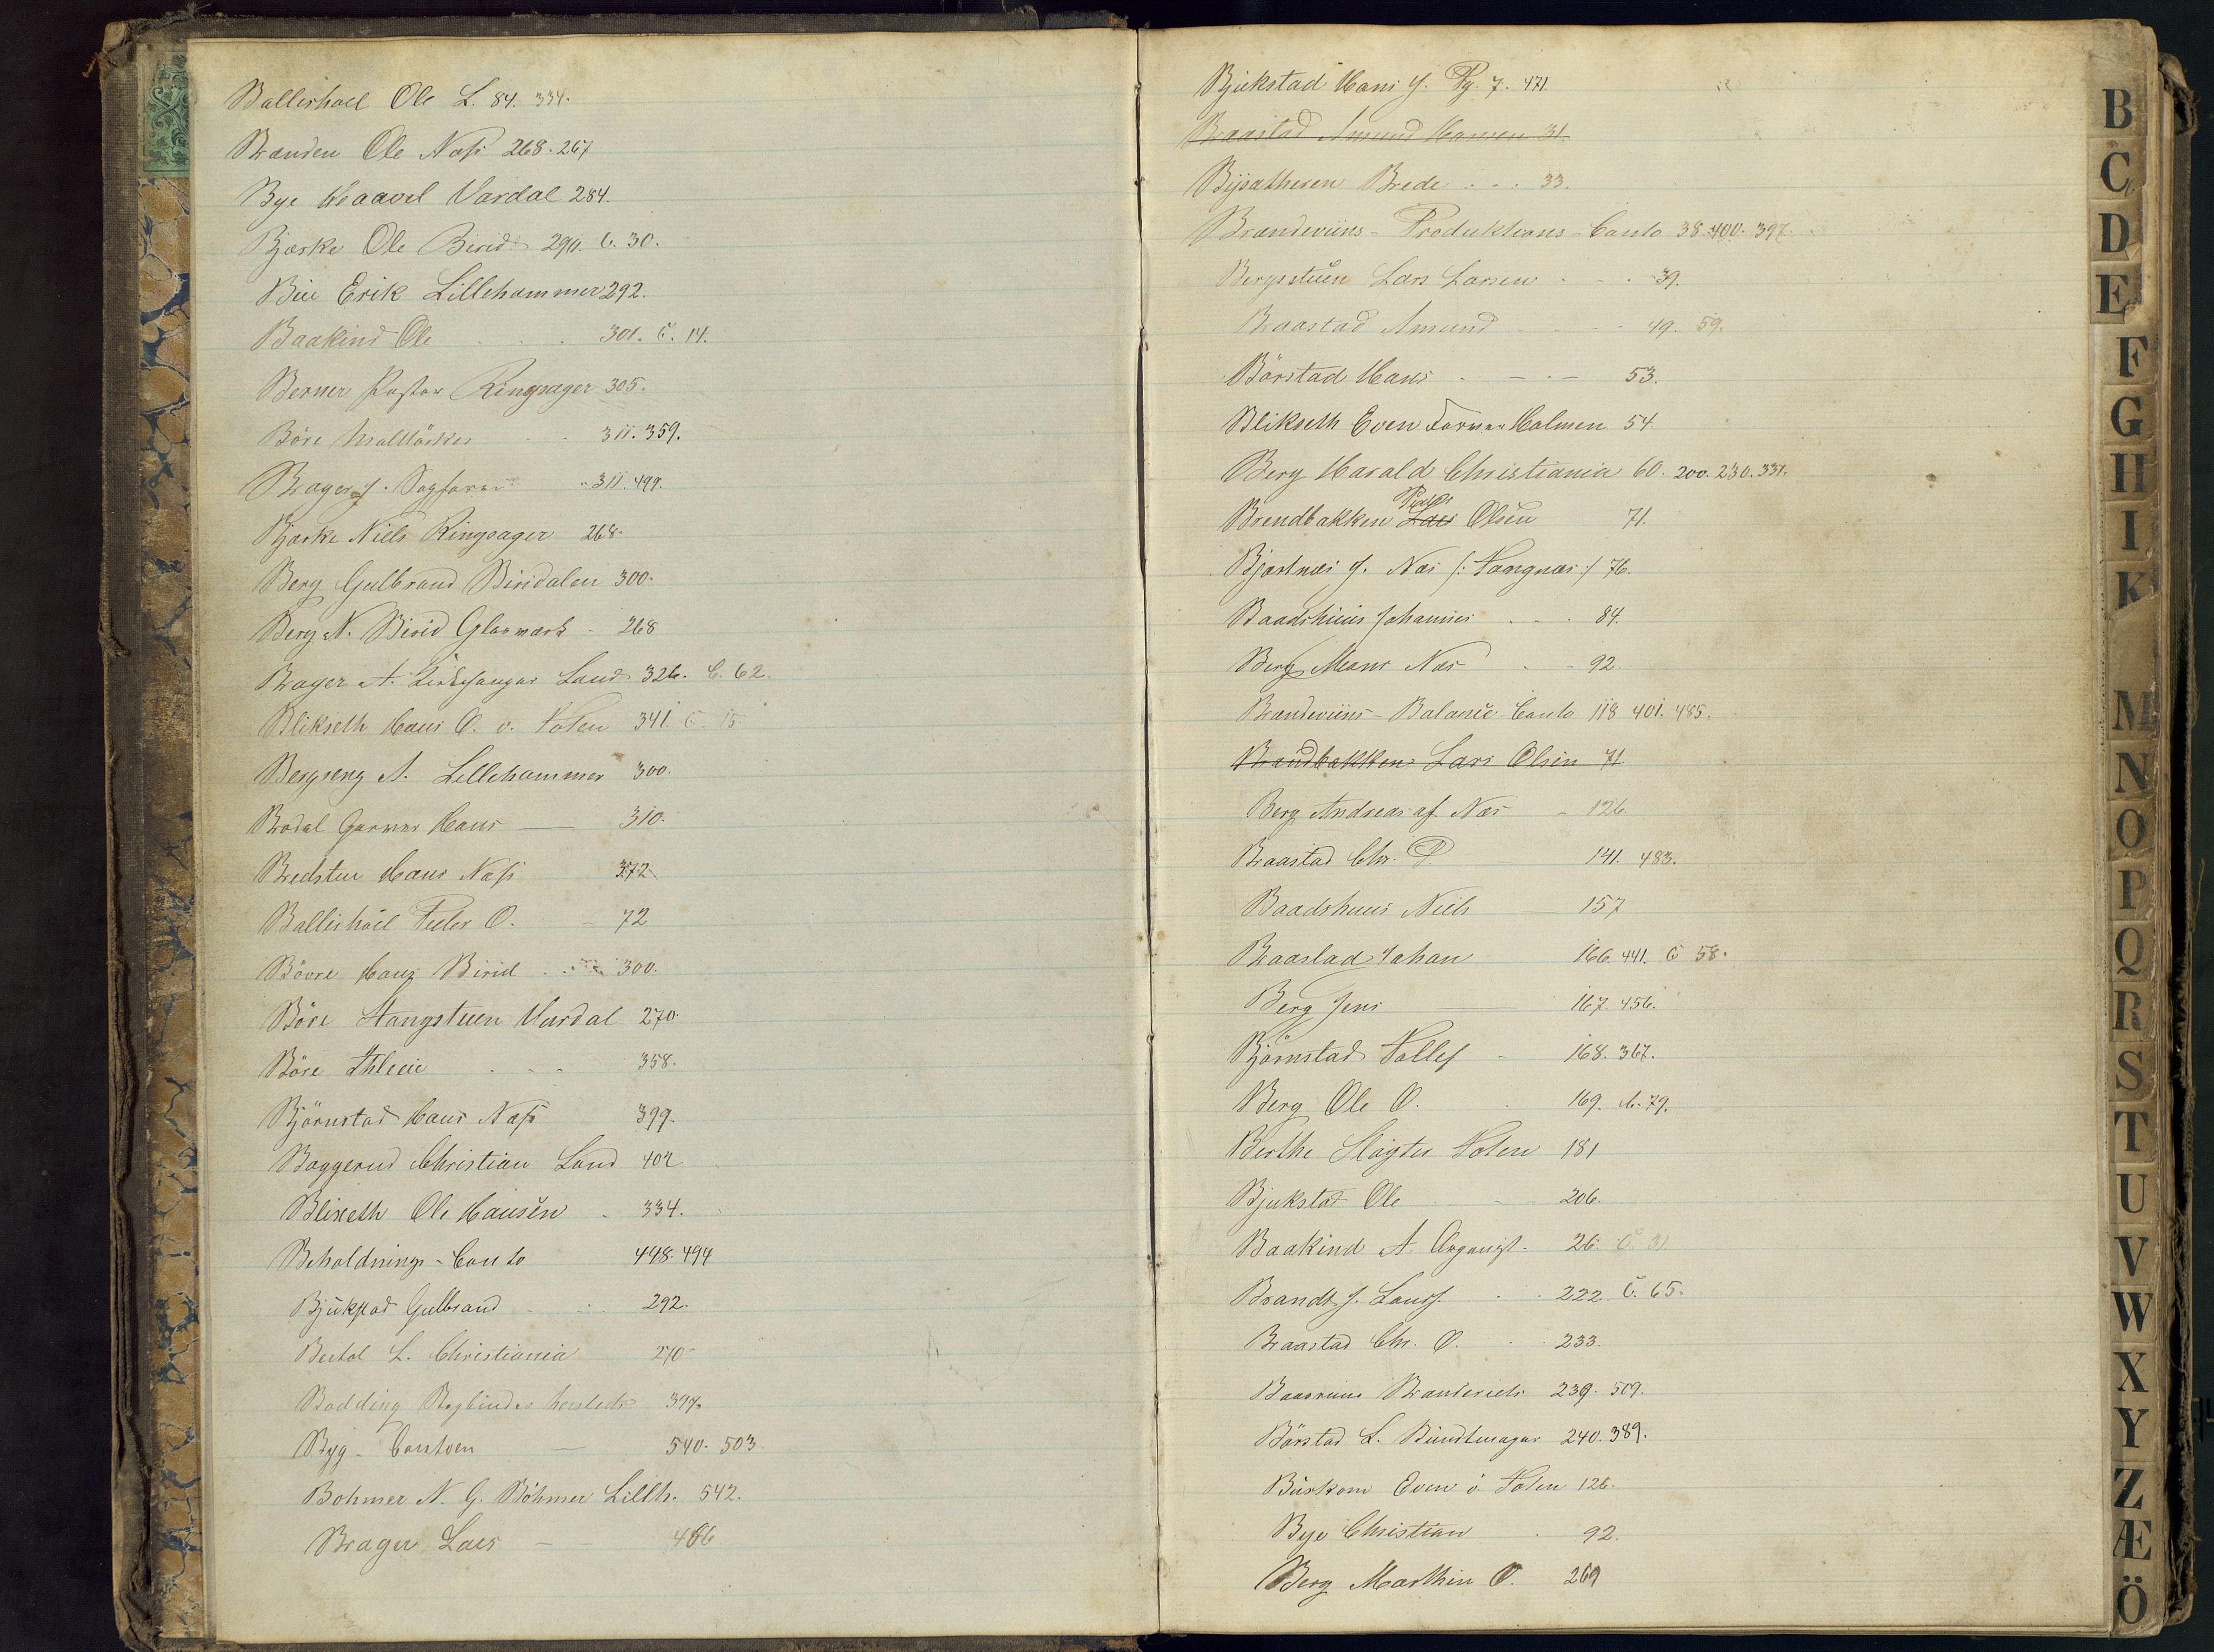 Ballishoel Ole L. 84. 334.
Branden Ole Næss 268. 267
Bye Haavel Vardal 284.
Bjørke Ole Birid 290. C. 30.
Bue Erik Lillehammer 292.
Baakind Ole . . . 301. C. 14.
Berner Pastor Ringsager 305.
Böre . . 311. 359.
Brager J. Sagfører 311. 499.
Bjørke Niels Ringsager 268.
Berg Gulbrand Biridalen 300.
Berg N. Birid Glasværk - 268
Brager A. Kirkesanger Land 326. C. 62.
Blikseth Hans O. v. Toten 341. C. 15
Bergseng A. Lillehammer 300.
Brodal Garver Hans — 310.
Bredstu Hans Næss 372
Ballishoel Peder O. - 72
Bövre Hans Birid . . 300.
Böre Stangstuen Vardal 270.
Böre . . . 358.
Björnstad Hans Næss 399.
Baggerud Christian Land 402
Blixeth Ole Hansen . 334.
Beholdnings-Conto 498. 494
Bjukstad Gulbrand . . 292.
Bertol L. Christiania 270
Bodding Bogbinder 397.
Byg-Contoen — 540. 503.
Bohmer N. G. Böhmer Lillh. 542.
Brager Lars — — 466
Bjukstad Hans J. Pg. 7. 471.
Braastad Amund Hansen 31.
Brede . . . 33.
Brændeviins-Produktions-Conto 38. 400. 397.
Bergsstuen Lars Larsen . - . 39.
Braastad Amund - - - 49. 59.
Börstad Hans . — . — 53.
Blikseth Even Farver Holmen 54
Berg Harald Christiania 60. 200. 230. 331.
Brendbakken Lars Olsen 71.
Bjørtnæs J. Næs /: Tangnæs :/ 76.
Baadshuus Johannes . . . 84.
Berg Mons Næs . - 92.
Brændeviins-Balance Conto 118 401. 485.
Brændbakken Lars Olsen 71.
Berg Andreas af Næs - 126.
Braastad Chr. P. 141. 483.
Baadshuus Niels 157
Braastad Johan 166. 441. C 58.
Berg Jens 167. 456.
Björnstad Tollef - 168. 367.
Berg Ole O. . 169. C. 79.
Berthe Slagter Toten 181
Bjukstad Ole - 206.
Baakind A. Organist - 26. C. 31
Brandt J. Landh. . . 222 C. 65.
Braastad Chr. O. . . 233.
Baasruns 239. 509.
Börstad L. Bundtmager 240. 389.
Burkom Even ö Toten 126.
Bye Christian . 92.
Berg Marthin O. 269
B
C
D
E
F
G
H
I
K
M
N
O
P
Q
R
S
T
U
V
W
X
Y
Z
Æ
Ö